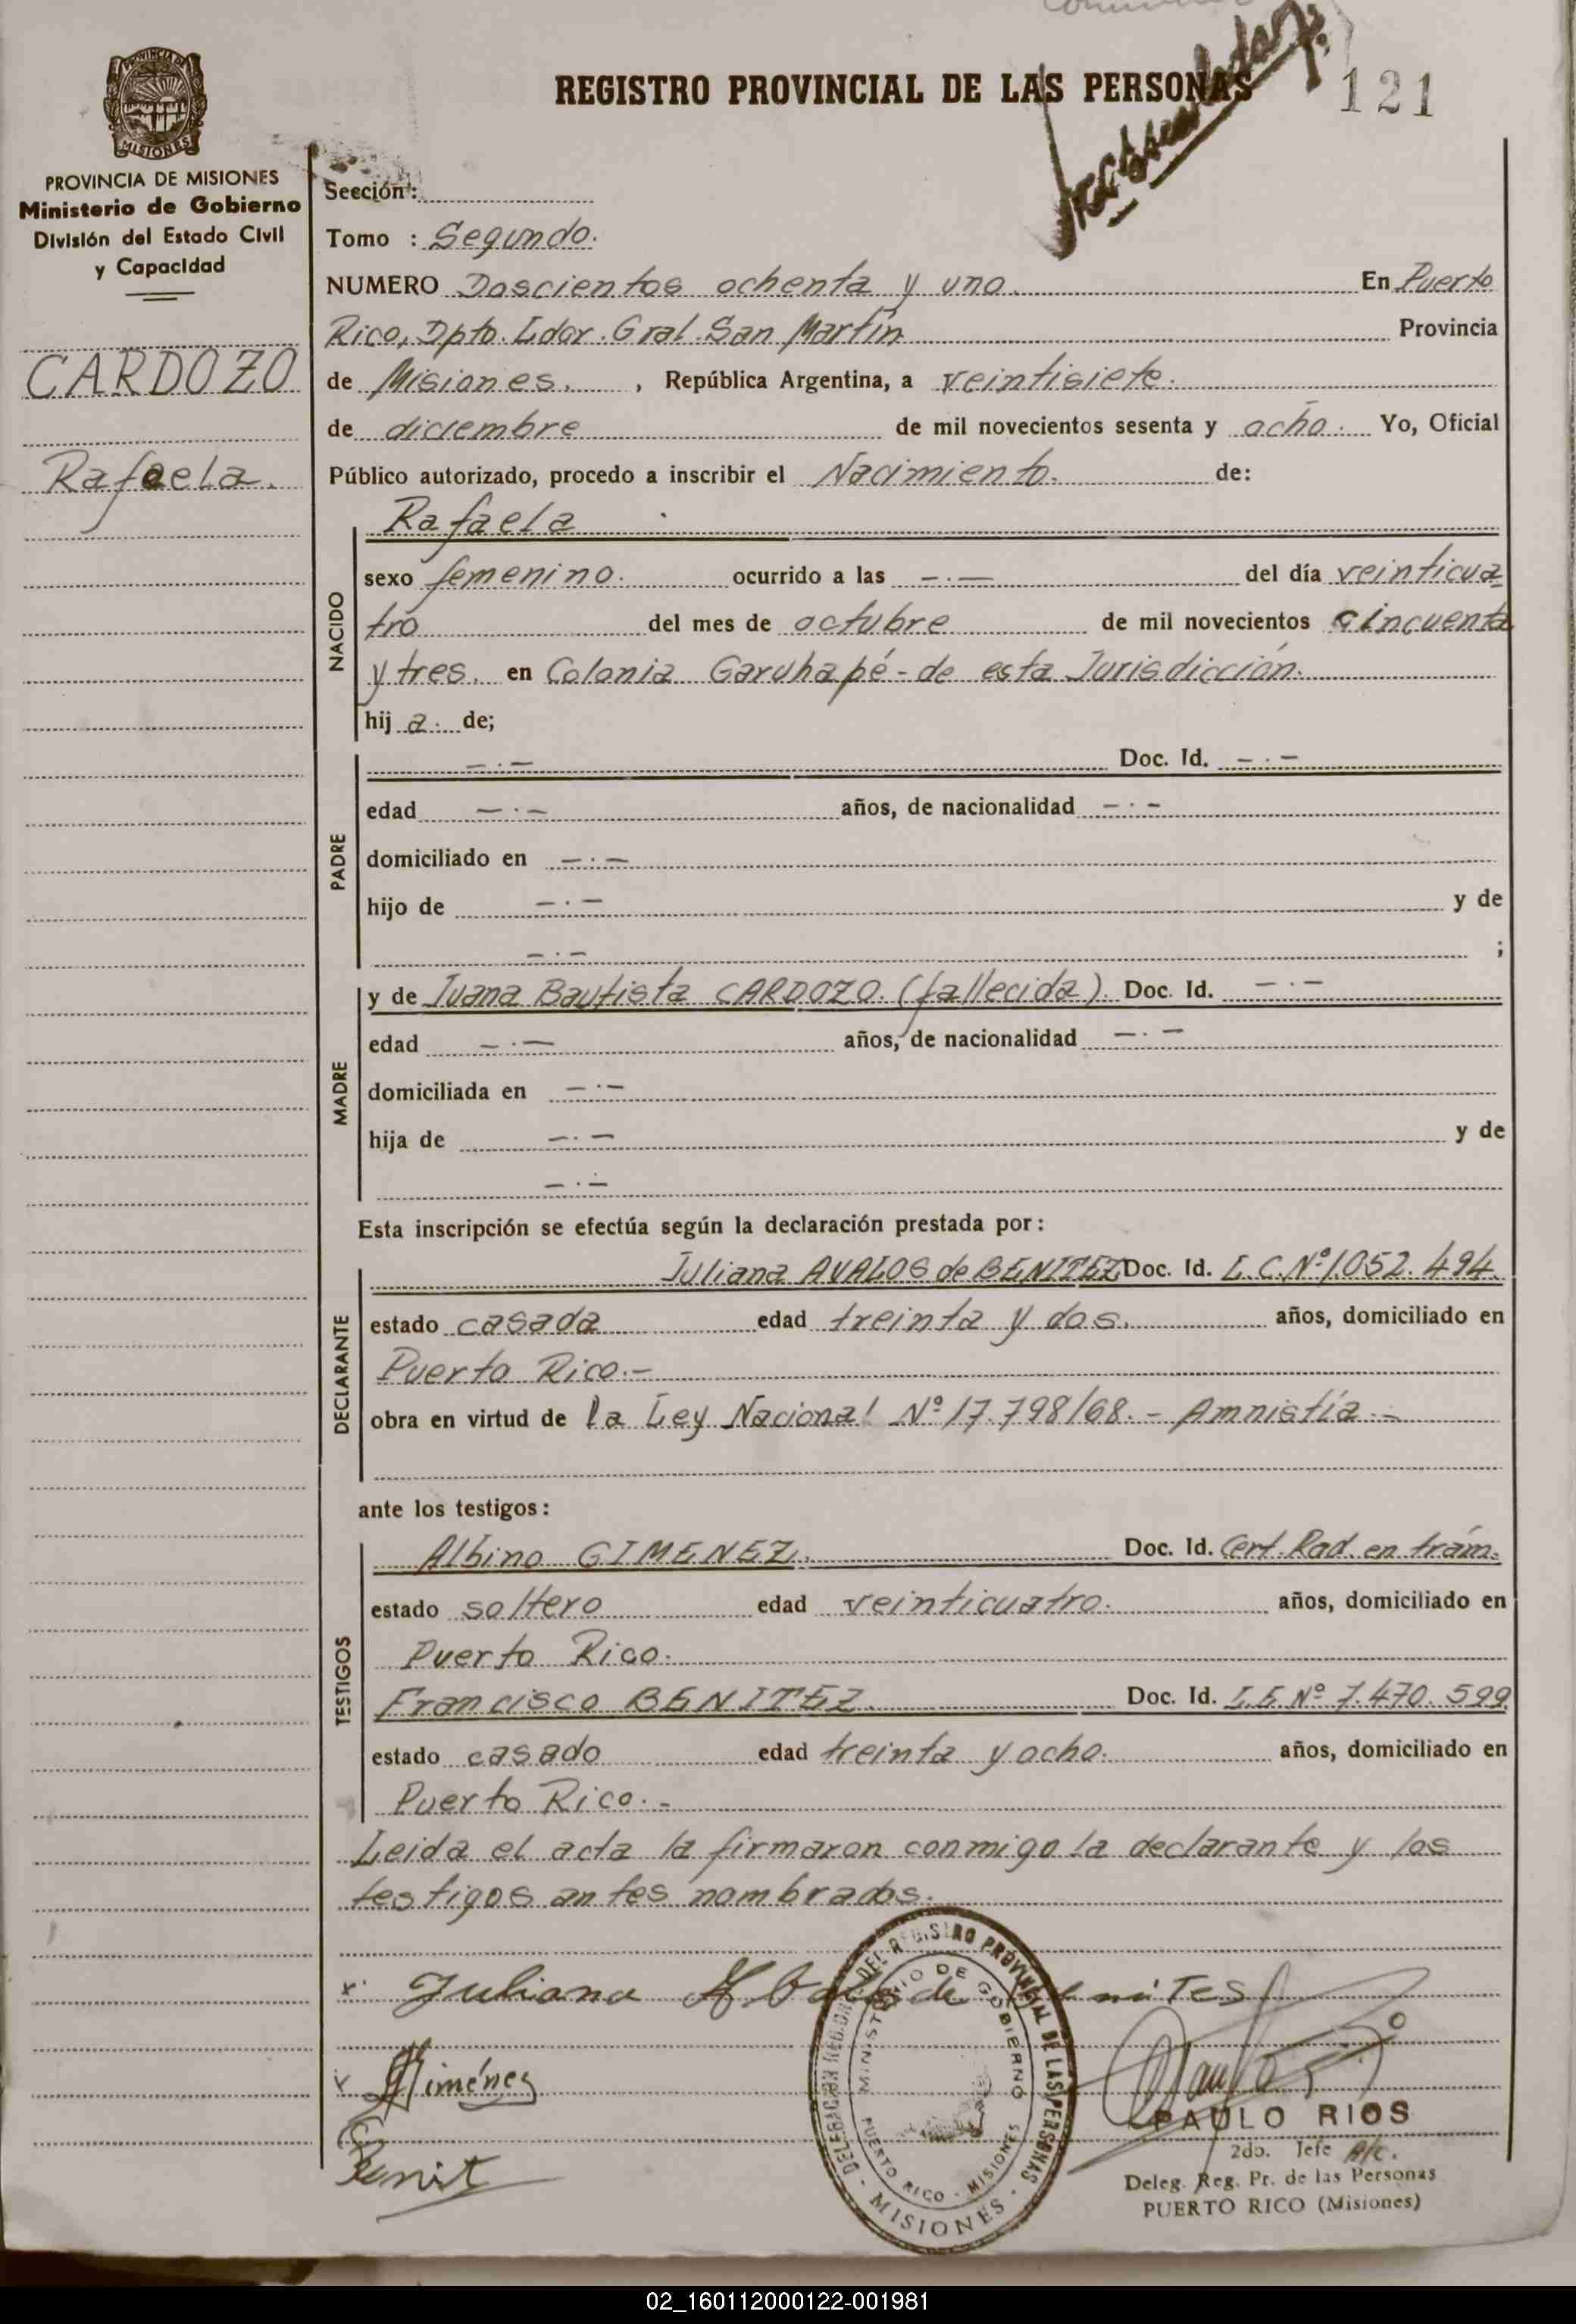 REGISTRO PROVINCIAL DE LAS PERSONAS
121
MISIONES
PROVINCIA DE MISIONES
Ministerio de Gobierno
División del Estado Civil
y Capacidad
CARDOZO
Rafaela.
Sección:
Tomo : Segundo.
NUMERO Doscientos ochenta y uno. En Puerto
Rico, Dpto. Ldor. Gral. San Martín Provincia
de Misiones. , República Argentina, a veintisiete.
de diciembre de mil novecientos sesenta y ocho. Yo, Oficial
Público autorizado, procedo a inscribir el Nacimiento. de:
NACIDO
Rafaela
sexo femenino. ocurrido a las -.- del día veinticua
tro del mes de octubre de mil novecientos cincuenta
y tres. en Colonia Garuhapé - de esta Jurisdicción.
hij a. de;
PADRE
-.- Doc. Id. -.-
edad -.- años, de nacionalidad -.-
domiciliado en -.-
hijo de -.- y de
-.- ;
MADRE
y de Juana Bautista CARDOZO. (fallecida). Doc. Id. -.-
edad -.- años, de nacionalidad -.-
domiciliada en -.-
hija de -.- y de
-.-
Esta inscripción se efectúa según la declaración prestada por:
DECLARANTE
Juliana AVALOS de BENITEZ Doc. Id. L.C. Nº 1.052.494.
estado casada edad treinta y dos. años, domiciliado en
Puerto Rico.-
obra en virtud de la Ley Nacional Nº 17.798/68.- Amnistía.-
ante los testigos:
TESTIGOS
Albino GIMENEZ. Doc. Id. Cert. Rad. en trám.
estado soltero edad veinticuatro. años, domiciliado en
Puerto Rico.
Francisco BENITEZ. Doc. Id. L.E. Nº 7.470.599
estado casado edad treinta y ocho. años, domiciliado en
Puerto Rico.-
Leida el acta la firmaron conmigo la declarante y los
testigos antes nombrados.
x Juliana
x Giménez
Benit
DELEGACION REGIONAL DEL REGISTRO PROVINCIAL DE LAS PERSONAS - MISIONES -
MINISTERIO DE GOBIERNO
PUERTO RICO - MISIONES
PAULO RIOS
2do. Jefe A/c.
Deleg. Reg. Pr. de las Personas
PUERTO RICO (Misiones)
02_160112000122-001981